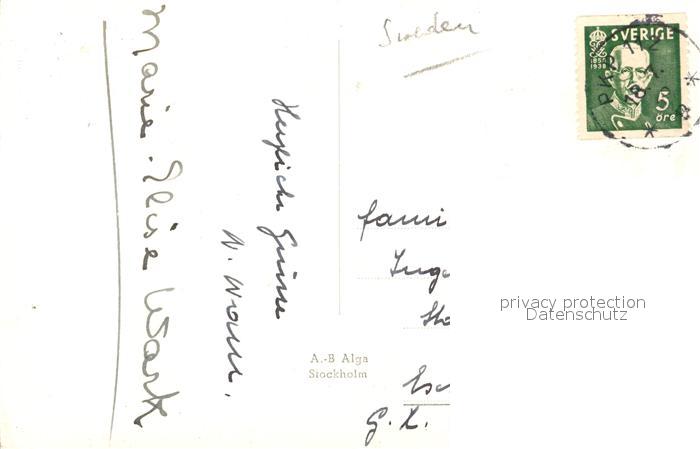 Sweden
SVERIGE
1858
1938
5
öre
18
Marie-Elise Wark
Herzliche Grüsse
fami
Inge
Sto
Esc
G. X.
A.-B Alga
Stockholm
privacy protection
Datenschutz